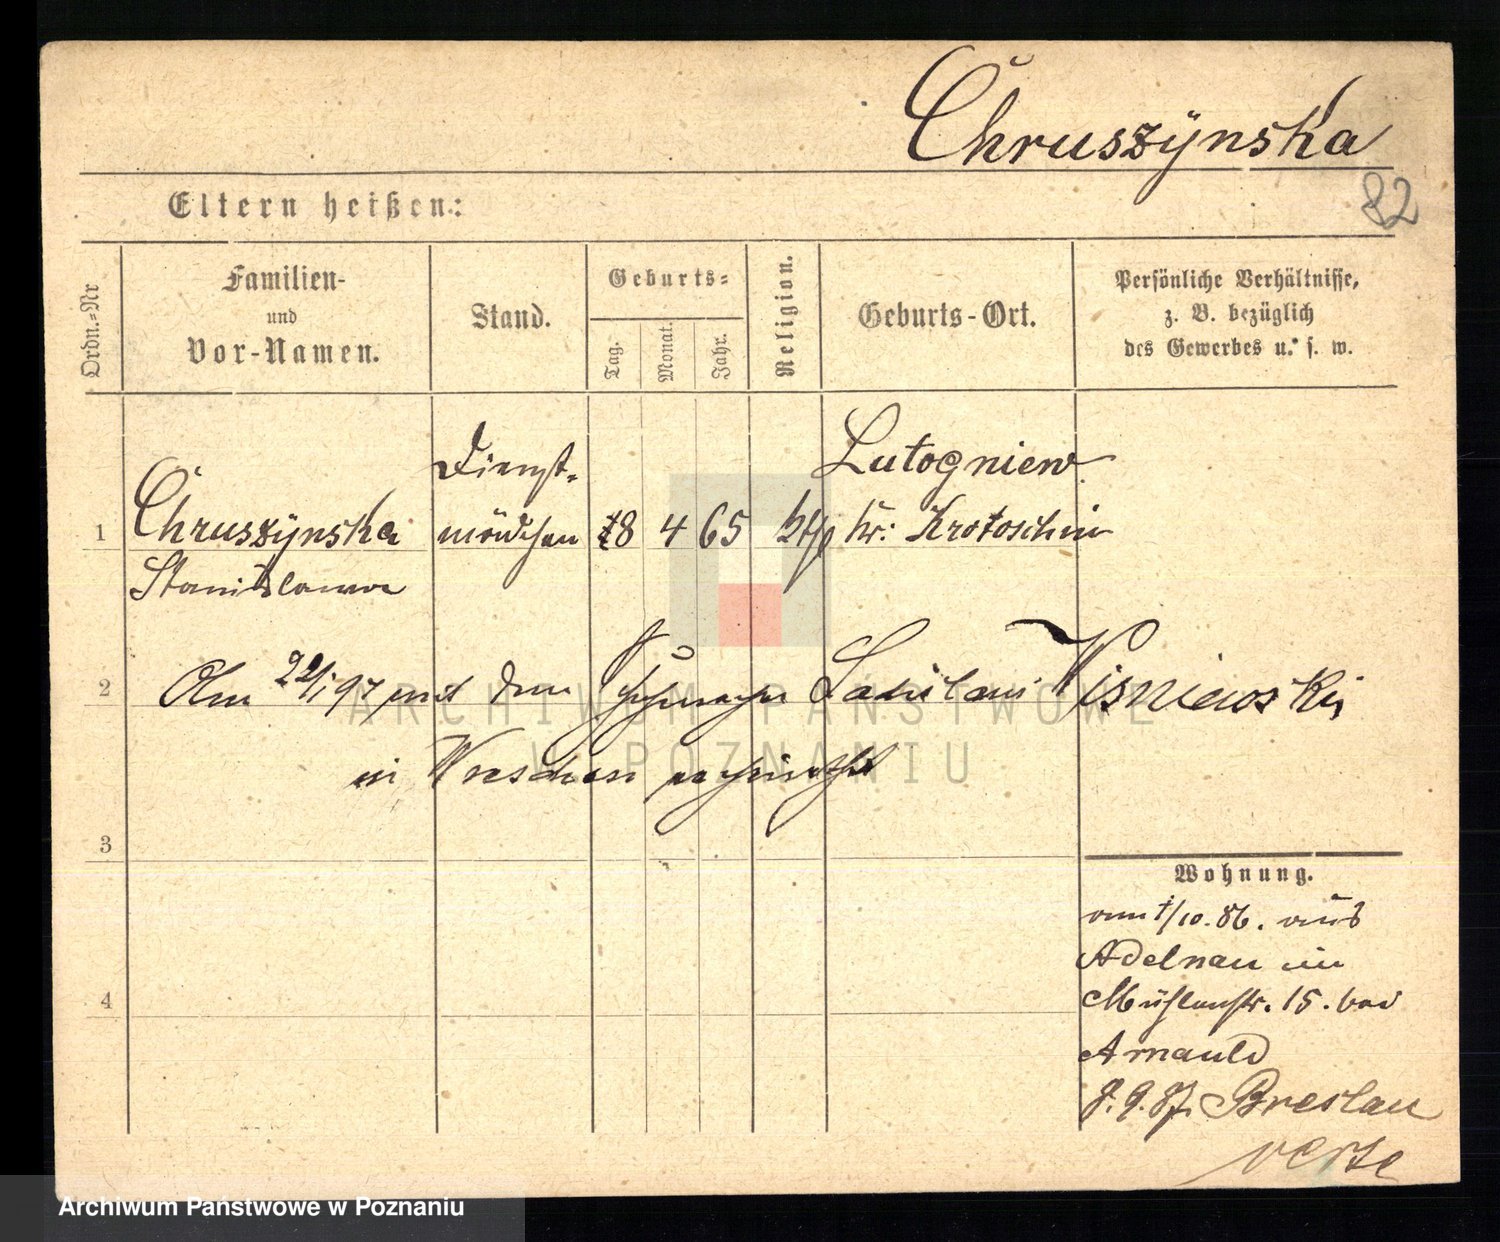 Chruszÿnska
82
Eltern heißen:
Ordn.-Nr
Familien-
und
Vor-Namen.
Stand.
Geburts-
Tag.
Monat.
Jahr.
Religion.
Geburts-Ort.
Persönliche Verhältnisse,
z. B. bezüglich
des Gewerbes u. s. w.
1
Chruszÿnska
Stanislawa
Dienst-
mädchen
18 4 65 kth
Lutogniew
Kr. Krotoschin
2
Am 22/1 97 mit dem Ladislaus Wisniewski
in Wreschen verheirathet
3
4
Wohnung.
am 1/10. 86. aus
Adelnau in
Mühlenstr. 15. bei
Arnauld
8. 9. 87. Breslau
verte
ARCHIWUM PAŃSTWOWE
W POZNANIU
Archiwum Państwowe w Poznaniu